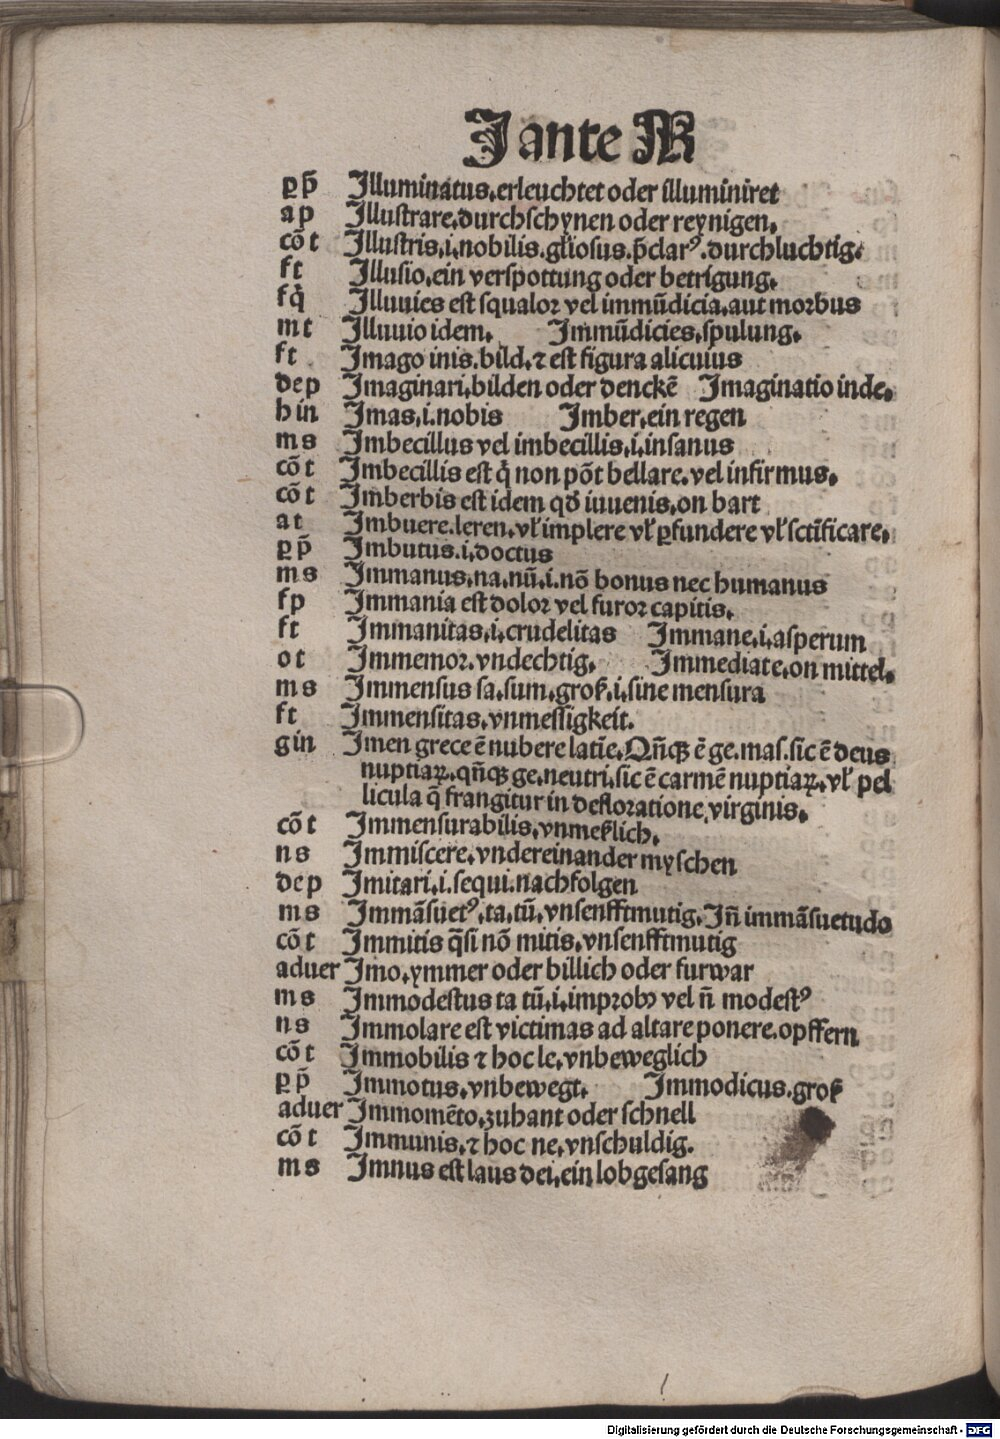 J ante M
ꝑp̃ Illuminatus.erleuchtet oder illuminiret
ap Illustrare.durchschynen oder reynigen.
cõt Illustris.i.nobilis.gl̃iosus.p̃clarꝰ.durchluchtig.
ft Illusio.ein verspottung oder betrigung.
fq̇ Illuuies est squalor vel immũdicia.aut morbus
mt Illuuio idem. Immũdicies.spulung.
ft Imago inis.bild.⁊ est figura alicuius
dep Imaginari.bilden oder denckẽ Imaginatio inde.
hin Imas.i.nobis Imber.ein regen
ms Imbecillus vel imbecillis.i.insanus
cõt Imbecillis est q̇ non põt bellare.vel infirmus.
cõt Imberbis est idem qđ iuuenis.on bart
at Imbuere.leren.vł implere vł ꝑfundere vł sctĩficare.
ꝑp̃ Imbutus.i.doctus
ms Immanus.na.nũ.i.nõ bonus nec humanus
fp Immania est dolor vel furor capitis.
ft Immanitas.i.crudelitas Immane.i.asperum
ot Immemor.vndechtig. Immediate.on mittel.
ms Immensus sa.sum.groß.i.sine mensura
ft Immensitas.vnmessigkeit.
gin Imen grece ẽ nubere latĩe.Qñqꝫ ẽ ge.mas.sic ẽ deus
nuptiaꝝ.qñqꝫ ge.neutri.sic ẽ carmẽ nuptiaꝝ.vł pel
licula q̃ frangitur in defloratione virginis.
cõt Immensurabilis.vnmeßlich.
ns Immiscere.vndereinander myschen
dep Imitari.i.sequi.nachfolgen
ms Immãsuetꝰ.ta.tũ.vnsenfftmutig.Iñ immãsuetudo
cõt Immitis q̃si nõ mitis.vnsenfftmutig
aduer Imo.ymmer oder billich oder furwar
ms Immodestus ta tũ.i.improbꝰ vel ñ modestꝰ
ns Immolare est victimas ad altare ponere.opffern
cõt Immobilis ⁊ hoc le.vnbeweglich
ꝑp̃ Immotus.vnbewegt. Immodicus.groß
aduer Immomẽto.zuhant oder schnell
cõt Immunis.⁊ hoc ne.vnschuldig.
ms Imnus est laus dei.ein lobgesang
Digitalisierung gefördert durch die Deutsche Forschungsgemeinschaft - DFG